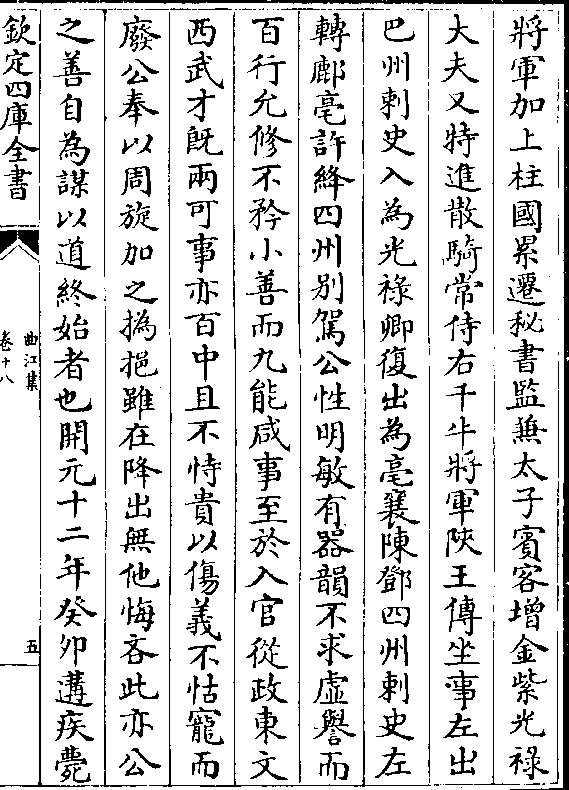 將軍加上柱國累遷秘書監兼太子賓客增金紫光祿
大夫又特進散騎常侍右千牛將軍陜王傅坐事左出
巴州刺史入為光祿卿復出為亳襄陳鄧四州刺史左
轉鄜亳許絳四州别駕公性明敏有器韻不求虛譽而
百行允修不矜小善而九能咸事至於入官從政東文
西武才既兩可事亦百中且不恃貴以傷義不怙寵而
廢公奉以周旋加之撝挹雖在降出無他悔吝此亦公
之善自為謀以道終始者也開元十二年癸卯遘疾薨
欽定四庫全書
曲江集
卷十八
五